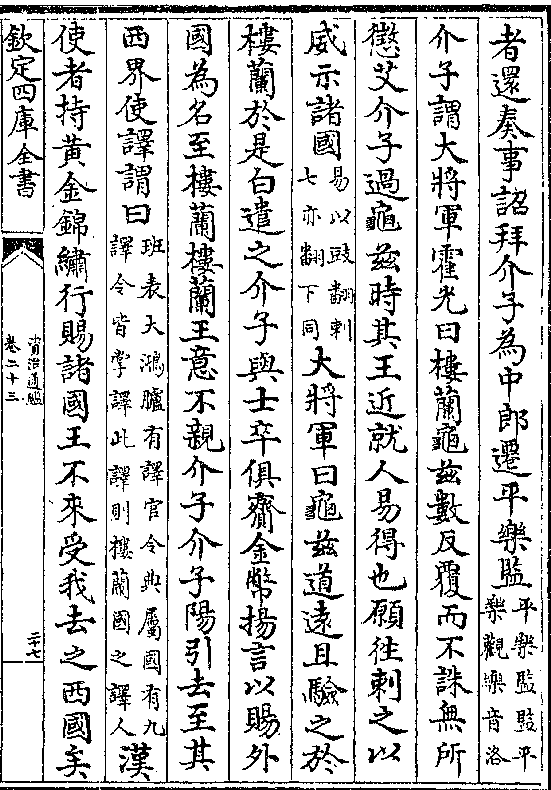 者還奏事詔拜介子為中郎遷平樂監平樂監監平
樂觀樂音洛
介子謂大將軍霍光曰樓蘭龜茲數反覆而不誅無所
懲艾介子過龜茲時其王近就人易得也願往刺之以
威示諸國易以豉翻刺
七亦翻下同大將軍曰龜茲道遠且驗之於
樓蘭於是白遣之介子與士卒俱齎金幣揚言以賜外
國為名至樓蘭樓蘭王意不親介子介子陽引去至其
西界使譯謂曰班表大鴻臚有譯官令典屬國有九
譯令皆掌譯此譯則樓蘭國之譯人漢
使者持黃金錦繡行賜諸國王不來受我去之西國矣
欽定四庫全書
資治通鑑
卷二十三
二十七